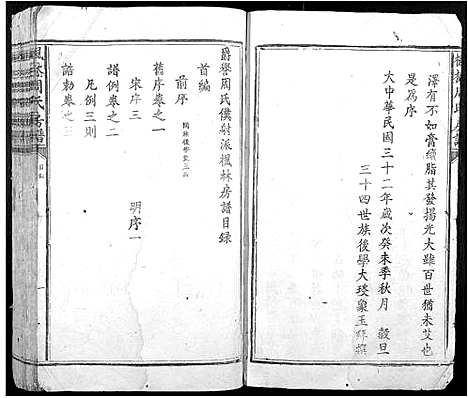 澤有不如膏續脂其發揚光大雖百世猶未艾也
是爲序
大中華民國三十二年歲次癸未季秋月 穀旦
三十四世族後學大琰象玉拜撰
爵譽周氏僕射派楓林房譜目録
首編
前序
舊序卷之一
宋序三 明序一
譜例卷之二
凡例三則
誥勅卷之三